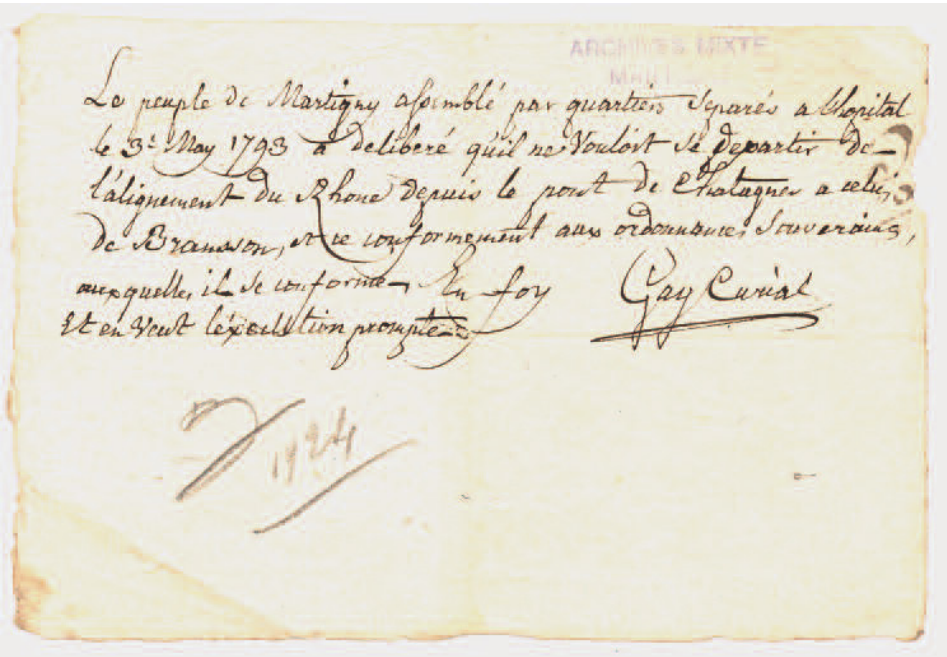 ARCHIVES MIXTE
Le peuple de Martigny assemblé par quartiers separés a lhopital
le 3e May 1793 a deliberé qu'il ne Vouloit se departir de
l'alignement du Rhone depuis le pont de Chatagner a celui
de Bransson, et ce conformement aux ordonnances Souveraines,
auxquelles il se conforme En foy Gay Curial
Et en Veut léxecution prompte
1924